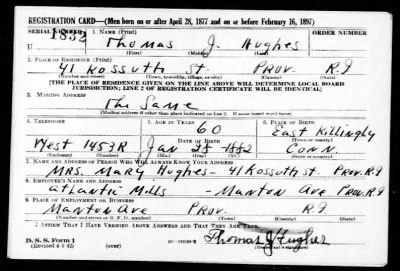 REGISTRATION CARD—(Men born on or after April 28, 1877 and on or before February 16, 1897)
SERIAL NUMBER 1. NAME (Print) ORDER NUMBER
U 1832 Thomas J. Hughes
(First) (Middle) (Last)
2. PLACE OF RESIDENCE (Print)
41 Kossuth St. Prov. R.I
(Number and street) (Town, township, village, or city) (County) (State)
[THE PLACE OF RESIDENCE GIVEN ON THE LINE ABOVE WILL DETERMINE LOCAL BOARD
JURISDICTION; LINE 2 OF REGISTRATION CERTIFICATE WILL BE IDENTICAL]
3. MAILING ADDRESS
The Same
[Mailing address if other than place indicated on line 2. If same insert word same]
4. TELEPHONE 5. AGE IN YEARS 6. PLACE OF BIRTH
60 East Killingly
DATE OF BIRTH (Town or county)
West 1453R Jan 28 1882 Conn.
(Exchange) (Number) (Mo.) (Day) (Yr.) (State or country)
7. NAME AND ADDRESS OF PERSON WHO WILL ALWAYS KNOW YOUR ADDRESS
MRS. Mary Hughes - 41 Kossuth St. Prov. R.I
8. EMPLOYER'S NAME AND ADDRESS
Atlantic Mills - Manton Ave Prov. R.I
9. PLACE OF EMPLOYMENT OR BUSINESS
Manton Ave Prov. R.I
(Number and street or R. F. D. number) (Town) (County) (State)
I AFFIRM THAT I HAVE VERIFIED ABOVE ANSWERS AND THAT THEY ARE TRUE.
D. S. S. Form 1 Thomas J Hughes
(Revised 4-1-42) (over) (Registrant's signature)